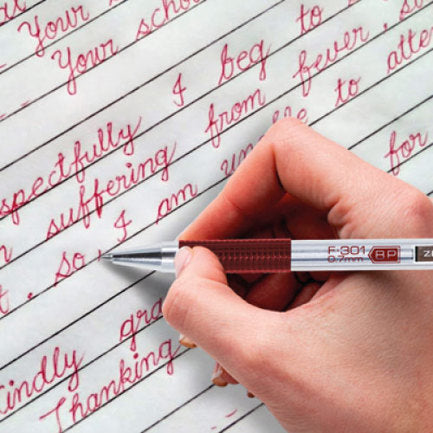 Your
Your scho
spectfully I beg to
suffering from fever,
, so I am un le to atten
for
Kindly gra
Thanking
F-301
0.7mm RP